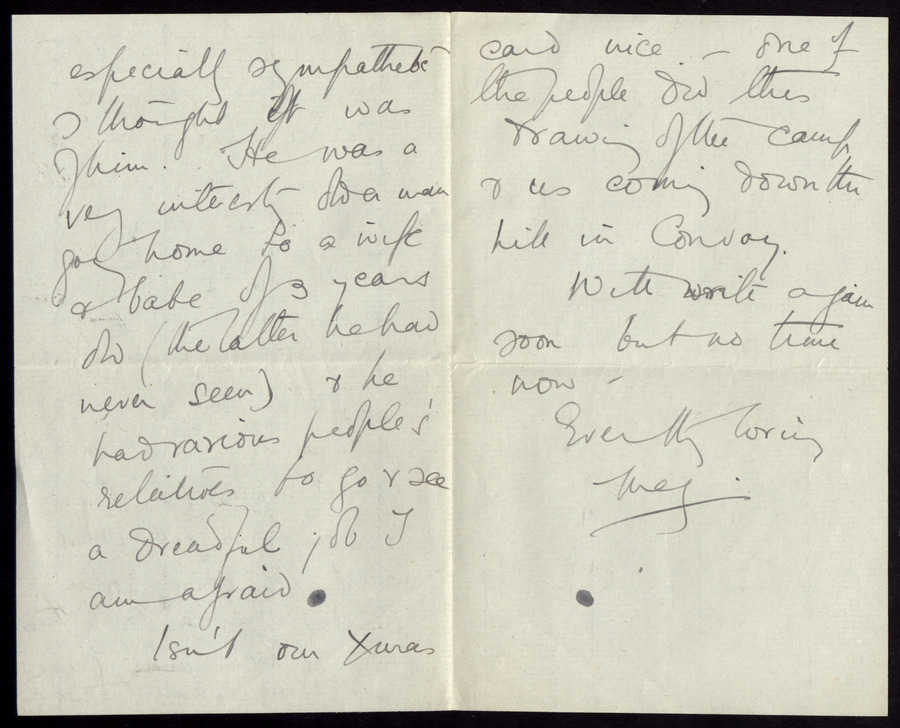 especially sympathetic
I thought it was
of him. He was a
very interesting older man
going home to a wife
& babe of 3 years
old (the latter he had
never seen) & he
had various people's
relatives to go & see
a dreadful job I
am afraid
Isn't our Xmas
card nice – one of
the people did this
drawing of the camp
& us coming down the
hill in Convoy.
Will write again
soon but no time
now –
Ever thy loving
Meg.